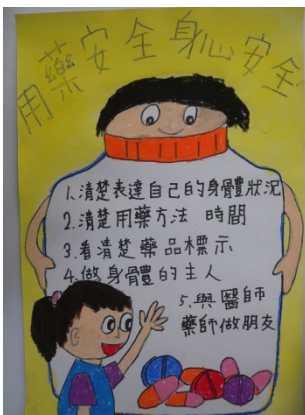 用藥安全身心安全
1.清楚表達自己的身體狀況
2.清楚用藥方法 時間
3.看清楚藥品標示
4.做身體的主人
5.與醫師
藥師做朋友